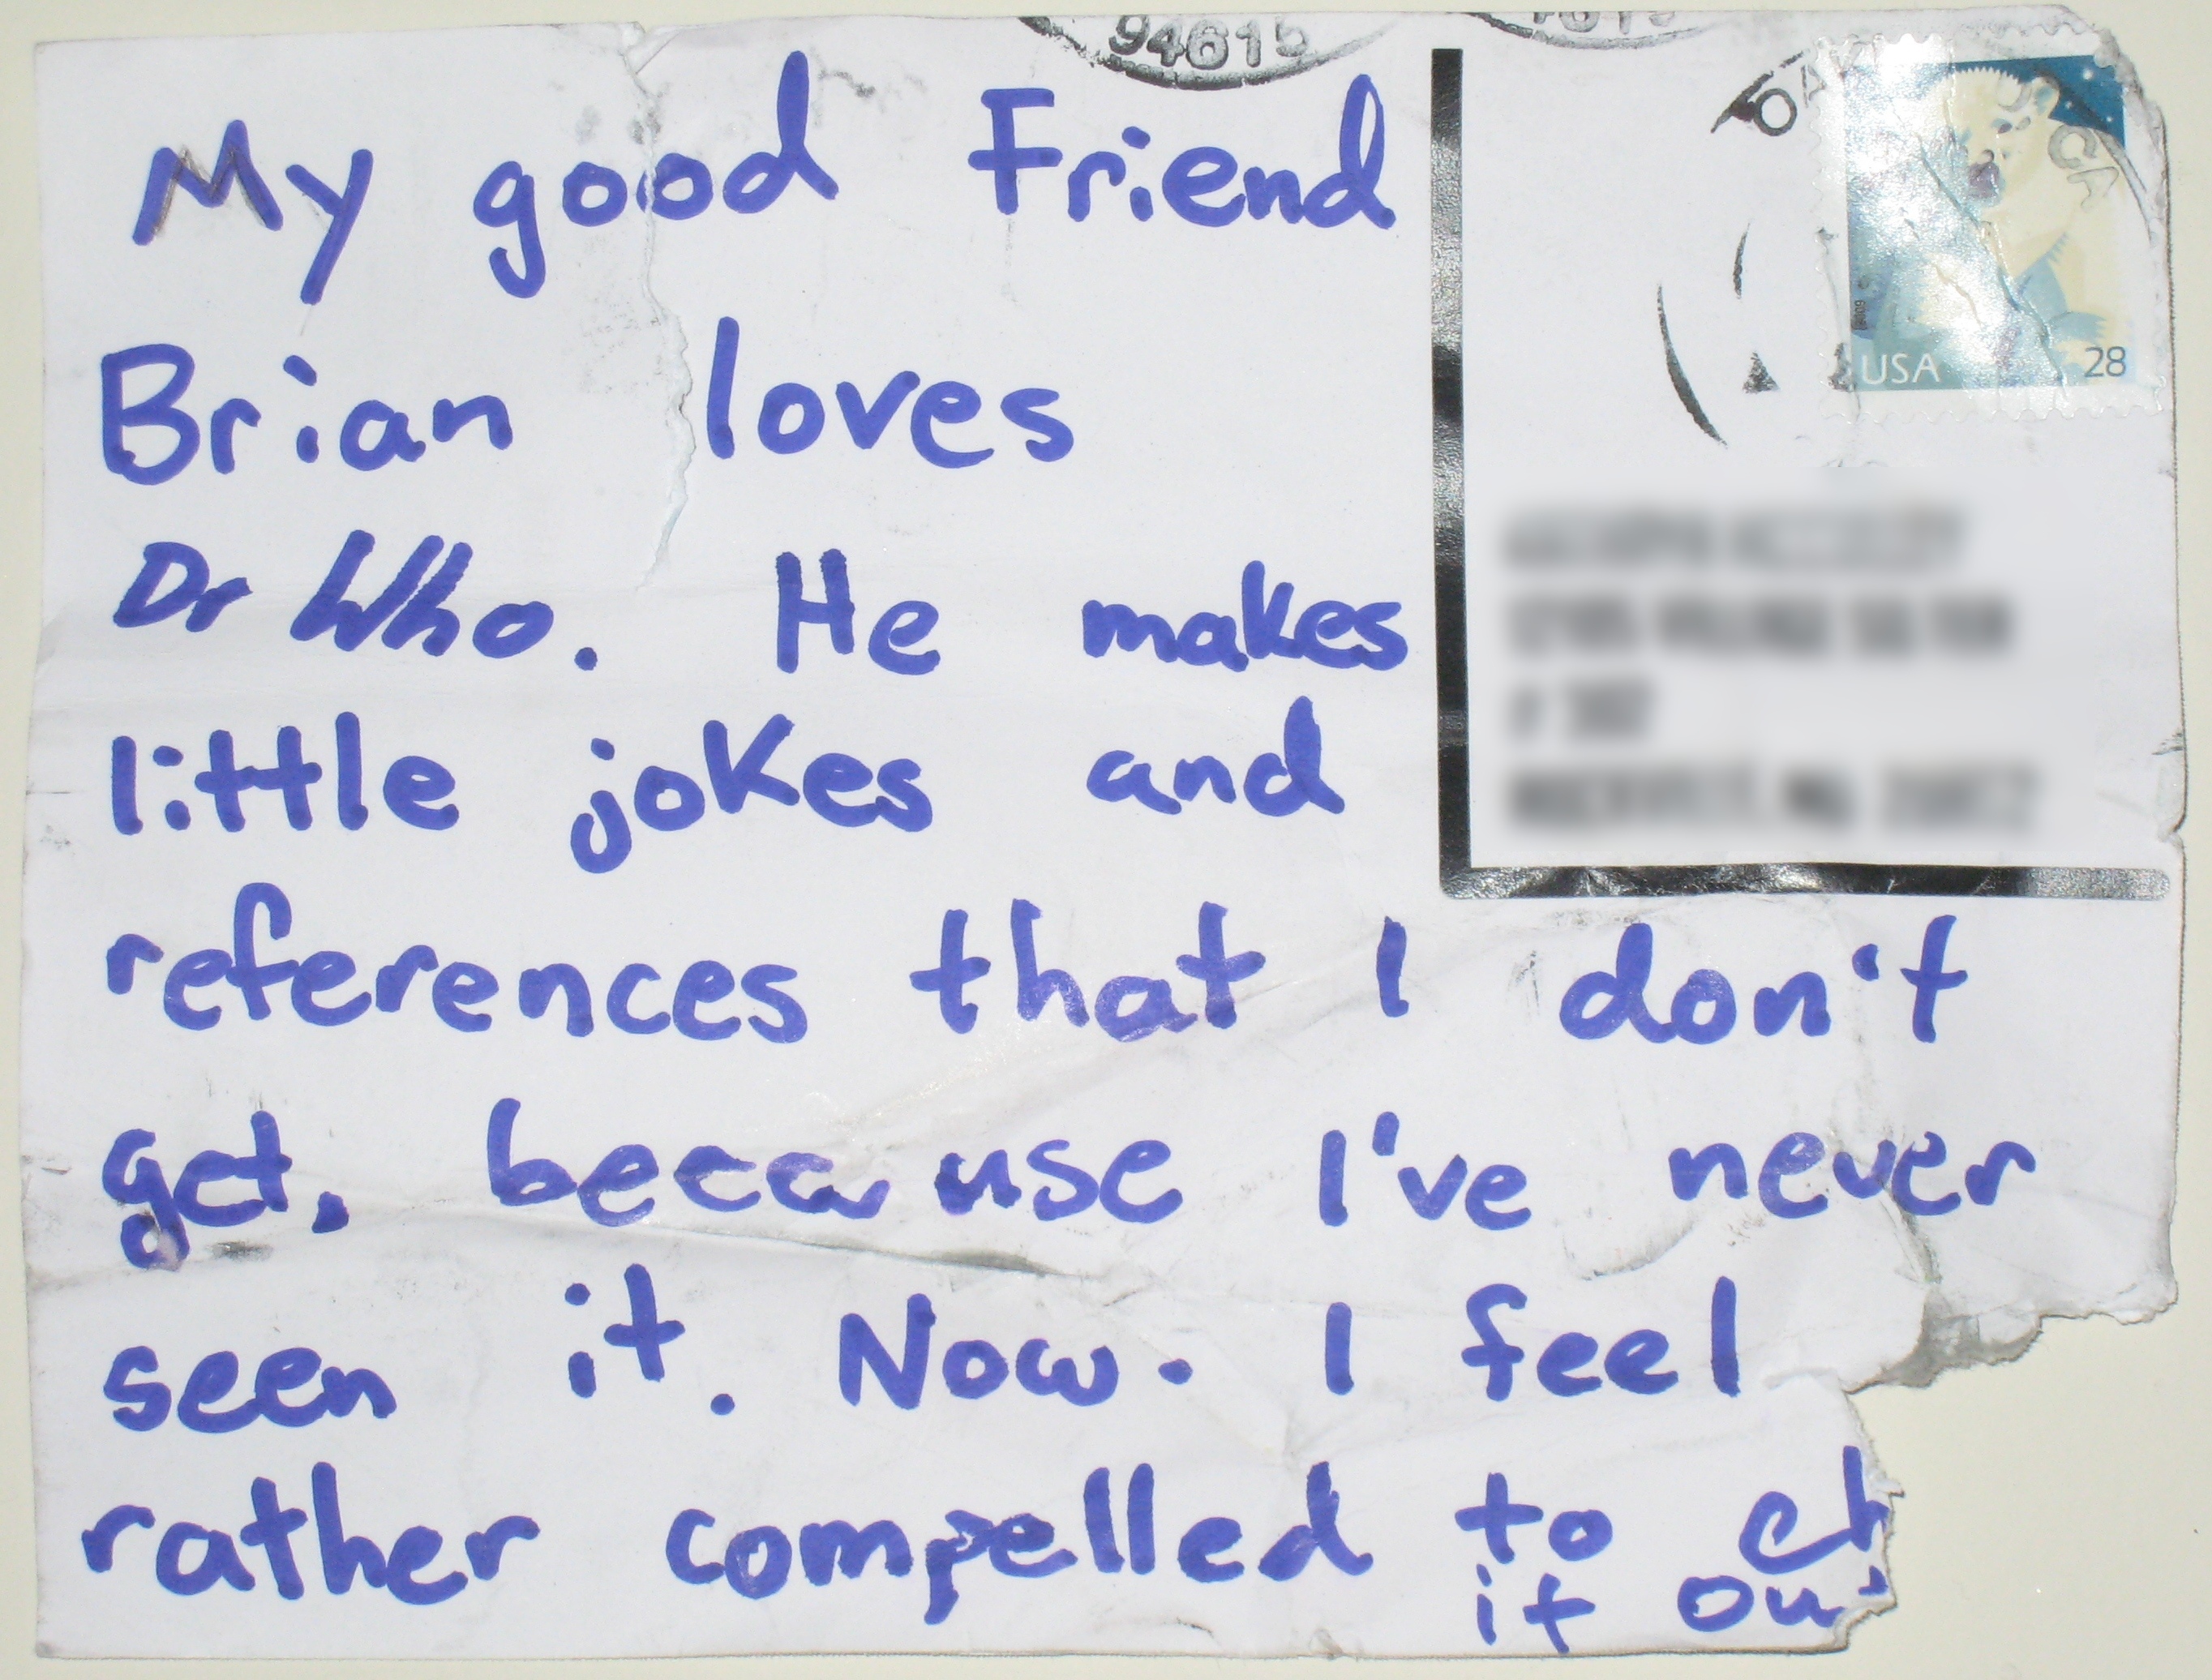 94615
My good Friend
USA 28
Brian loves
Dr Who. He makes
little jokes and
references that I don't
get, because I've never
seen it. Now. I feel
rather compelled to ch
it ou